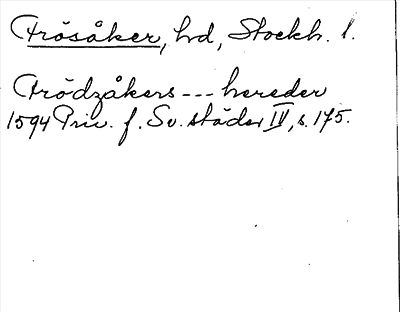 Frösåker, hd, Stockh. l.
Frödzåkers --- hereder
1594 Priv. f. Sv. städer IV, s. 175.